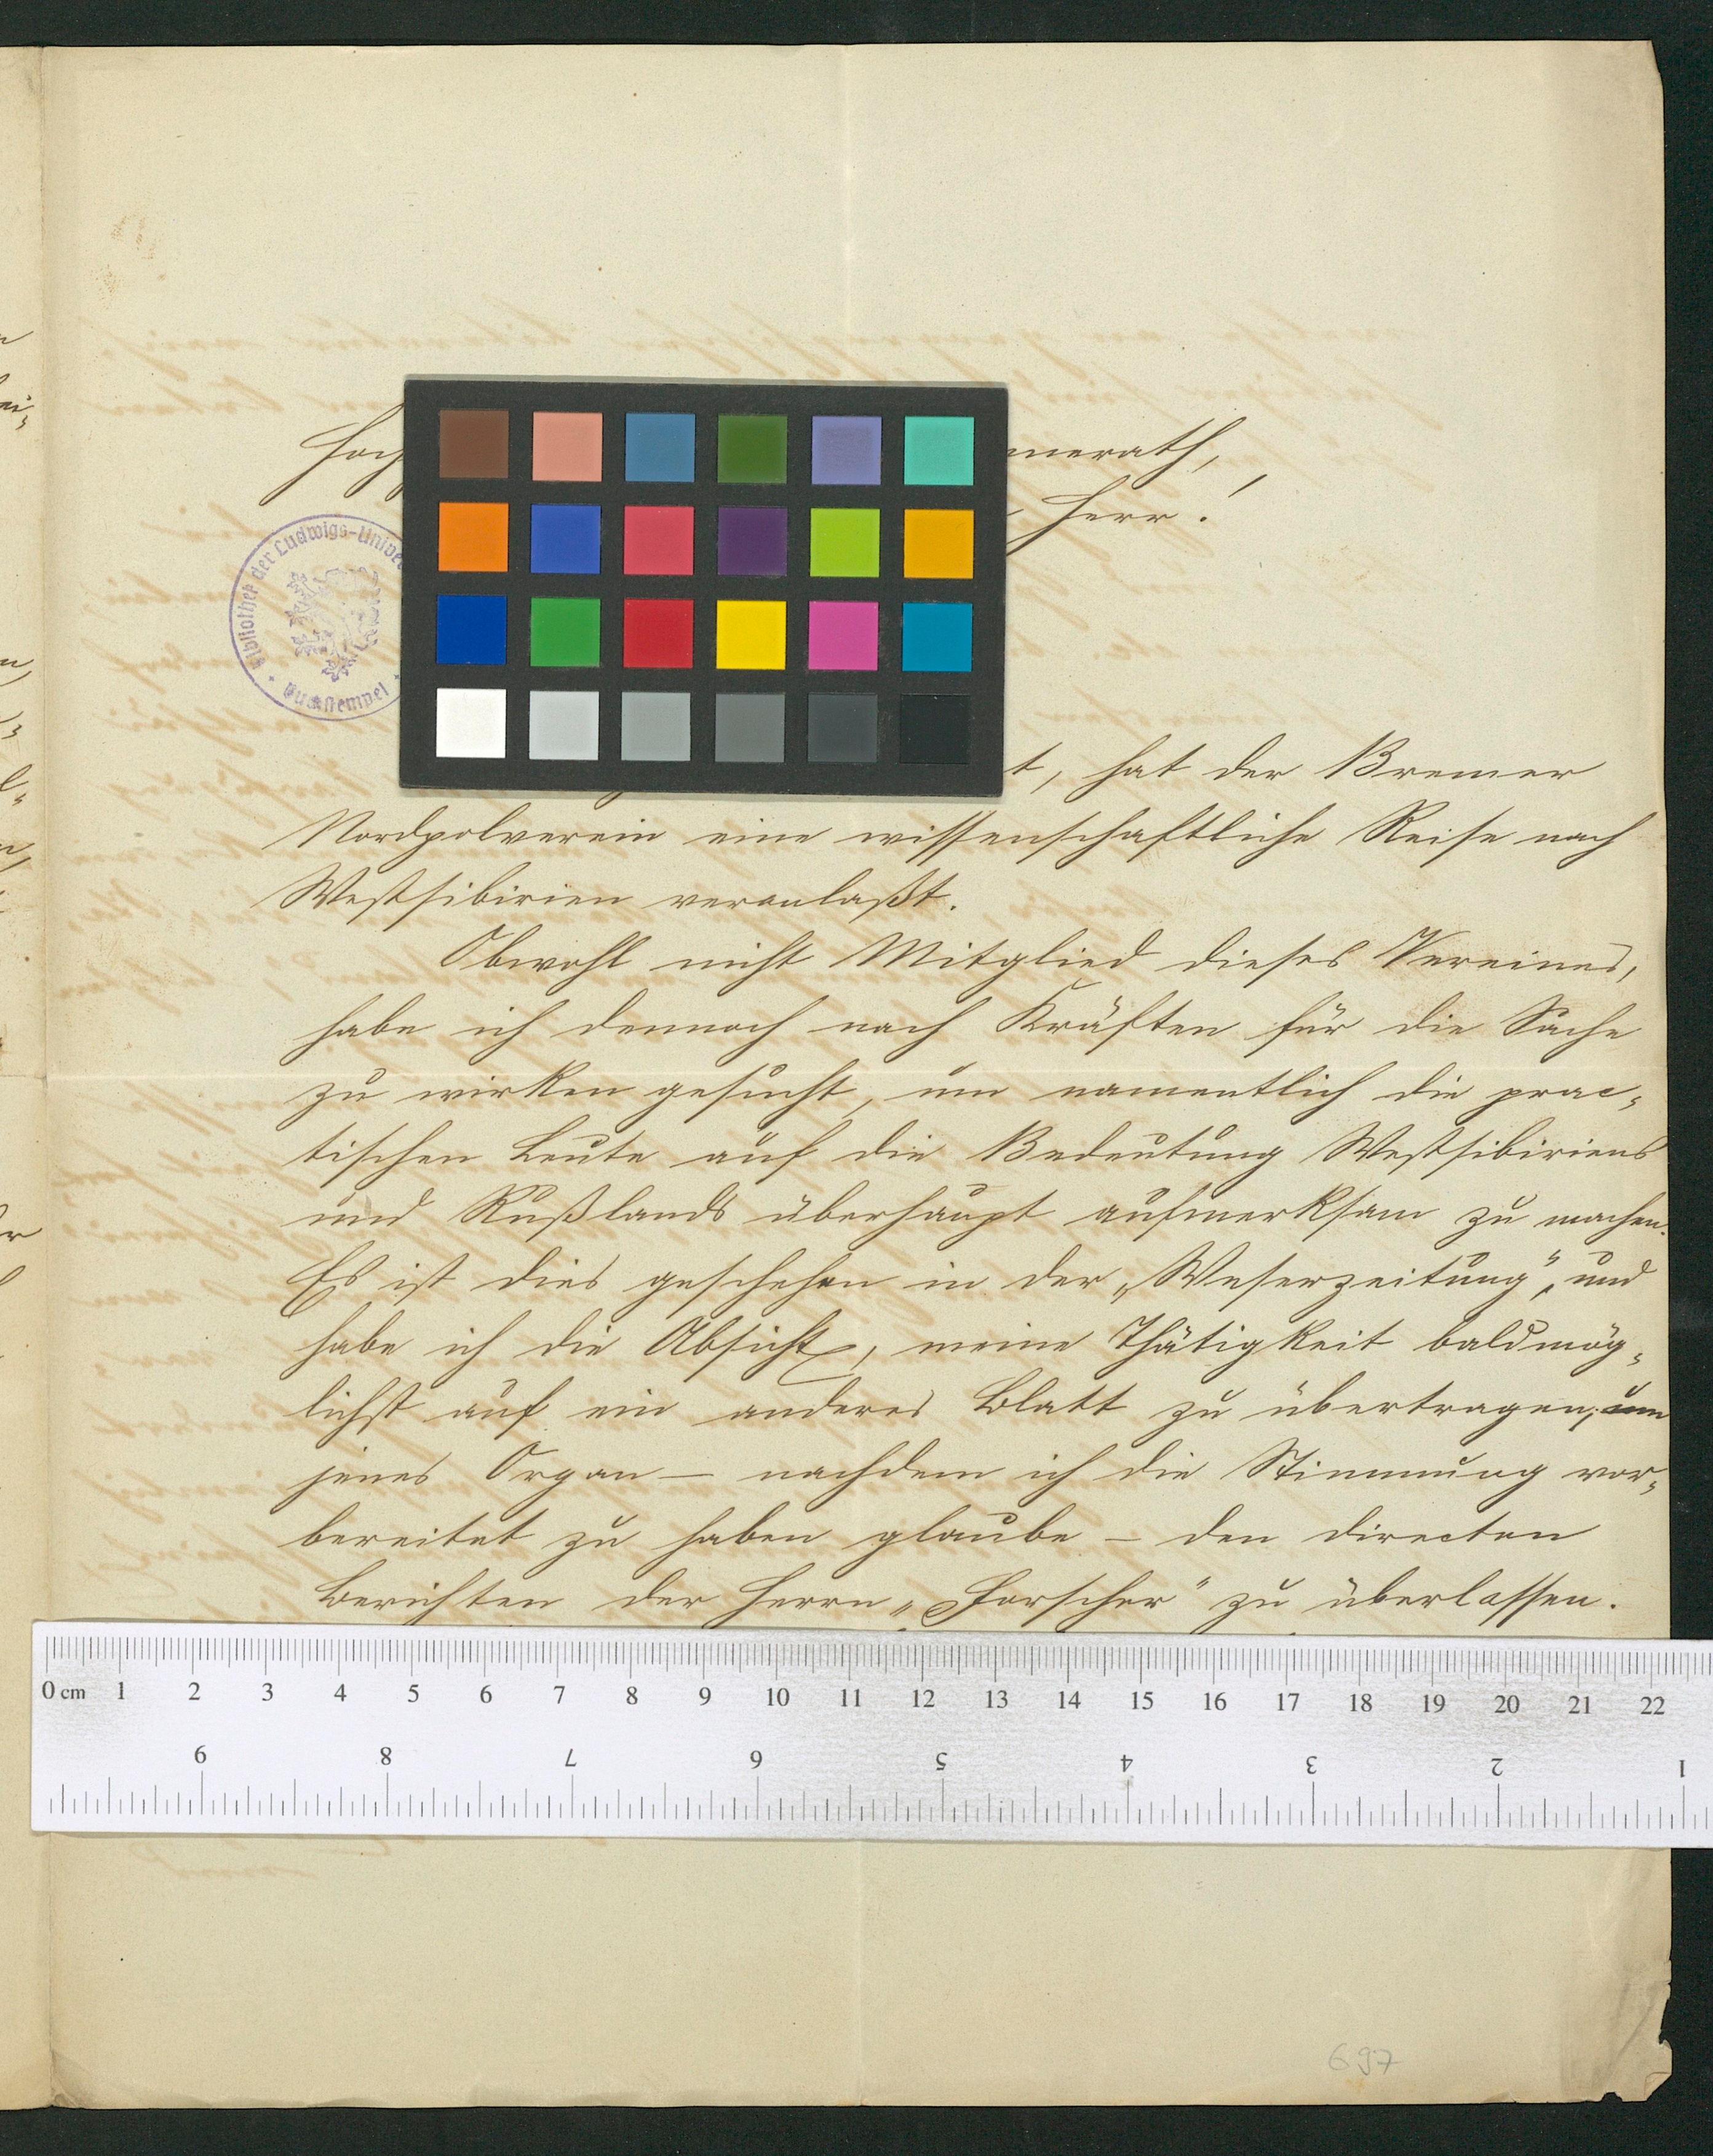 Hoch
merath,
Herr!
Bibliothek der Ludwigs-Unive
t, hat der Bremer
Nordpolverein eine wissenschaftliche Reise nach
Westsibirien veranlaßt.
Obwohl nicht Mitglied dieses Vereines,
habe ich dennoch nach Kräften für die Sache
zu wirken gesucht, um namentlich die prac-
tischen Leute auf die Bedeutung Westsibiriens
und Rußlands überhaupt aufmerksam zu machen.
Es ist dies geschehen in der „Weserzeitung“, und
habe ich die Absicht, meine Thätigkeit baldmög-
lichst auf ein anderes Blatt zu übertragen, um
jenes Organ – nachdem ich die Stimmung vor-
bereitet zu haben glaube – den directen
Berichten der Herrn „Forscher“ zu überlassen.
0 cm 1 2 3 4 5 6 7 8 9 10 11 12 13 14 15 16 17 18 19 20 21 22
9 8 7 6 5 4 3 2 1
697